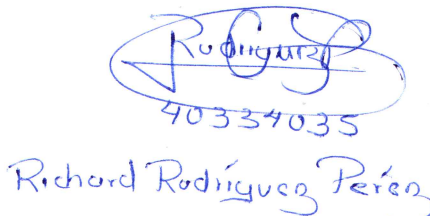 Rodriguez P
40334035
Richard Rodríguez Pérez